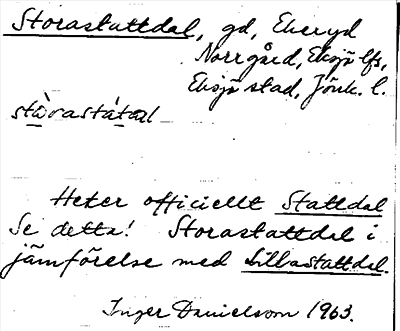 Storastattdal, gd, Ekeryd
Norrgård, Eksjö lfs,
Eksjö stad, Jönk. l.
stòrastátal
Heter officiellt Stattdal
Se detta! Storastattdal i
jämförelse med Lillastattdal.
Inger Danielsom 1963.